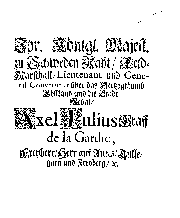 Ihr. Königl. Majest.
zu Schweden Raht / Feld-
Marschall-Lieutenant und Gene-
ral Gouverneur über das Hertzogthumb
Ehstland und die Stadt
Reval /
Axel Julius Graff
de la Gardie,
Freyherr / Herr auff
und &c.